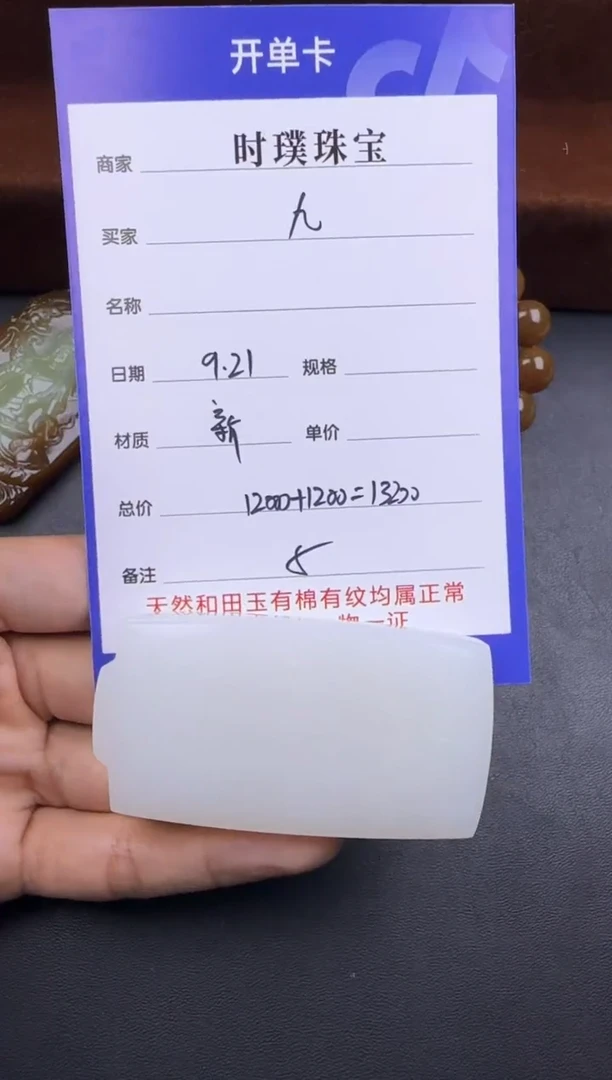 开单卡
商家 时璞珠宝
买家 九
名称
日期 9.21 规格
材质 新 单价
总价 1200+1200=13200
备注
天然和田玉有棉有纹均属正常
物一证